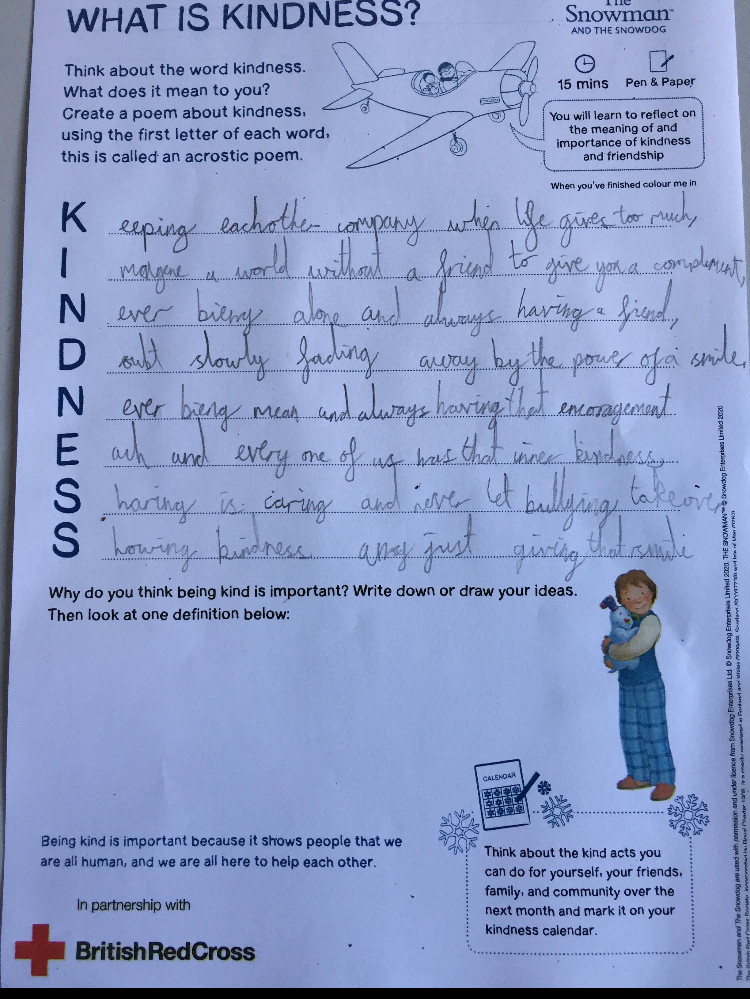 WHAT IS KINDNESS?
The
Snowman™
AND THE SNOWDOG
Think about the word kindness.
What does it mean to you?
Create a poem about kindness,
using the first letter of each word,
this is called an acrostic poem.
15 mins Pen & Paper
You will learn to reflect on
the meaning of and
importance of kindness
and friendship
When you've finished colour me in
K eeping eachother company when life gives too much,
I matgene a world without a friend to give you a complement,
N ever bieng alone and always having a friend,
D oubt slowly fading away by the power of a smile,
N ever bieng mean and always having that encoragement
E ach and every one of us has that inner kindness,
S haring is caring and never let bullying takeover,
S howing kindness just giving that smile
Why do you think being kind is important? Write down or draw your ideas.
Then look at one definition below:
CALENDAR
Being kind is important because it shows people that we
are all human, and we are all here to help each other.
Think about the kind acts you
can do for yourself, your friends,
family, and community over the
next month and mark it on your
kindness calendar.
In partnership with
BritishRedCross